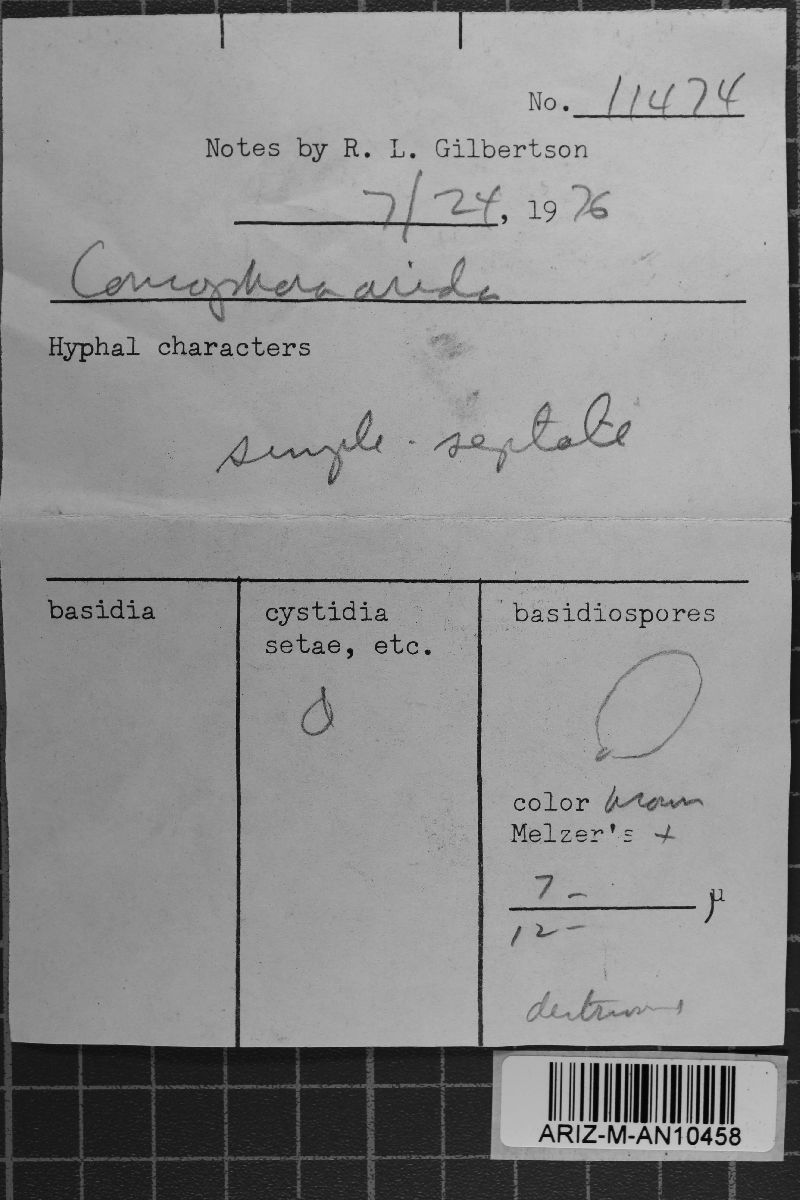 No. 11474
Notes by R. L. Gilbertson
7/24, 1976
Coniophora arida
Hyphal characters
simple-septate
basidia
cystidia
setae, etc.
0
basidiospores
color brown
Melzer's +
7 -
12 -
μ
ARIZ-M-AN10458